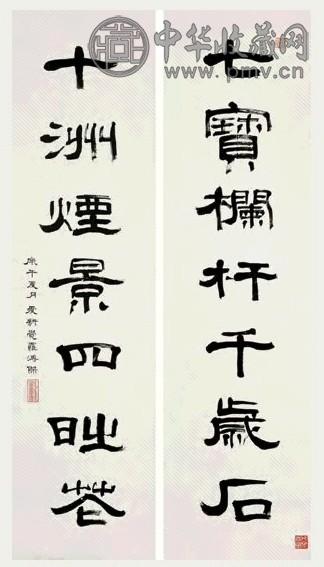 中华收藏网
www.pmv.cn
七寶欄杆千歲石
十洲煙景四時花
庚午夏月 愛新覺羅溥傑